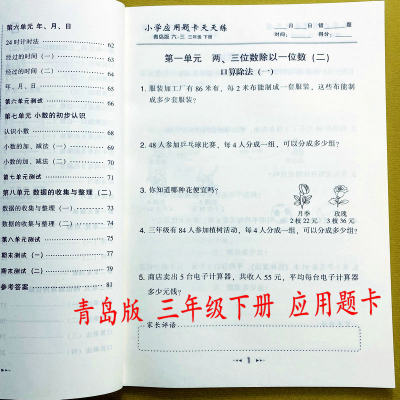 第六单元 年、月、日
24时计时法 62
经过的时间（一） 63
经过的时间（二） 64
年、月、日 65
第六单元测试 66
第七单元 小数的初步认识
认识小数 68
小数的加、减法（一） 69
小数的加、减法（二） 70
第七单元测试 71
第八单元 数据的收集与整理（二）
数据的收集与整理（一） 73
数据的收集与整理（二） 74
第八单元测试 75
期末测试（一） 77
期末测试（二） 79
参考答案 81
小学应用题卡天天练
青岛版 六·三 三年级 下册
月 日 错 题
时间： 得分：
第一单元 两、三位数除以一位数（二）
口算除法（一）
1. 服装加工厂有86米布，每2米布能制成一套服装，这些布能制
成多少套服装？
2. 48人参加乒乓球比赛，每4人分成一组，可以分成多少组？
3. 你知道哪种花便宜吗？
月季 玫瑰
2枝22元 3枝36元
4. 三年级有84人参加植树活动，每4人分成一组，可以分成多少组？
5. 商店卖出5台电子计算器，共收入55元，平均每台电子计算器
多少元钱？
青岛版 三年级下册 应用题卡
家长评语：
1